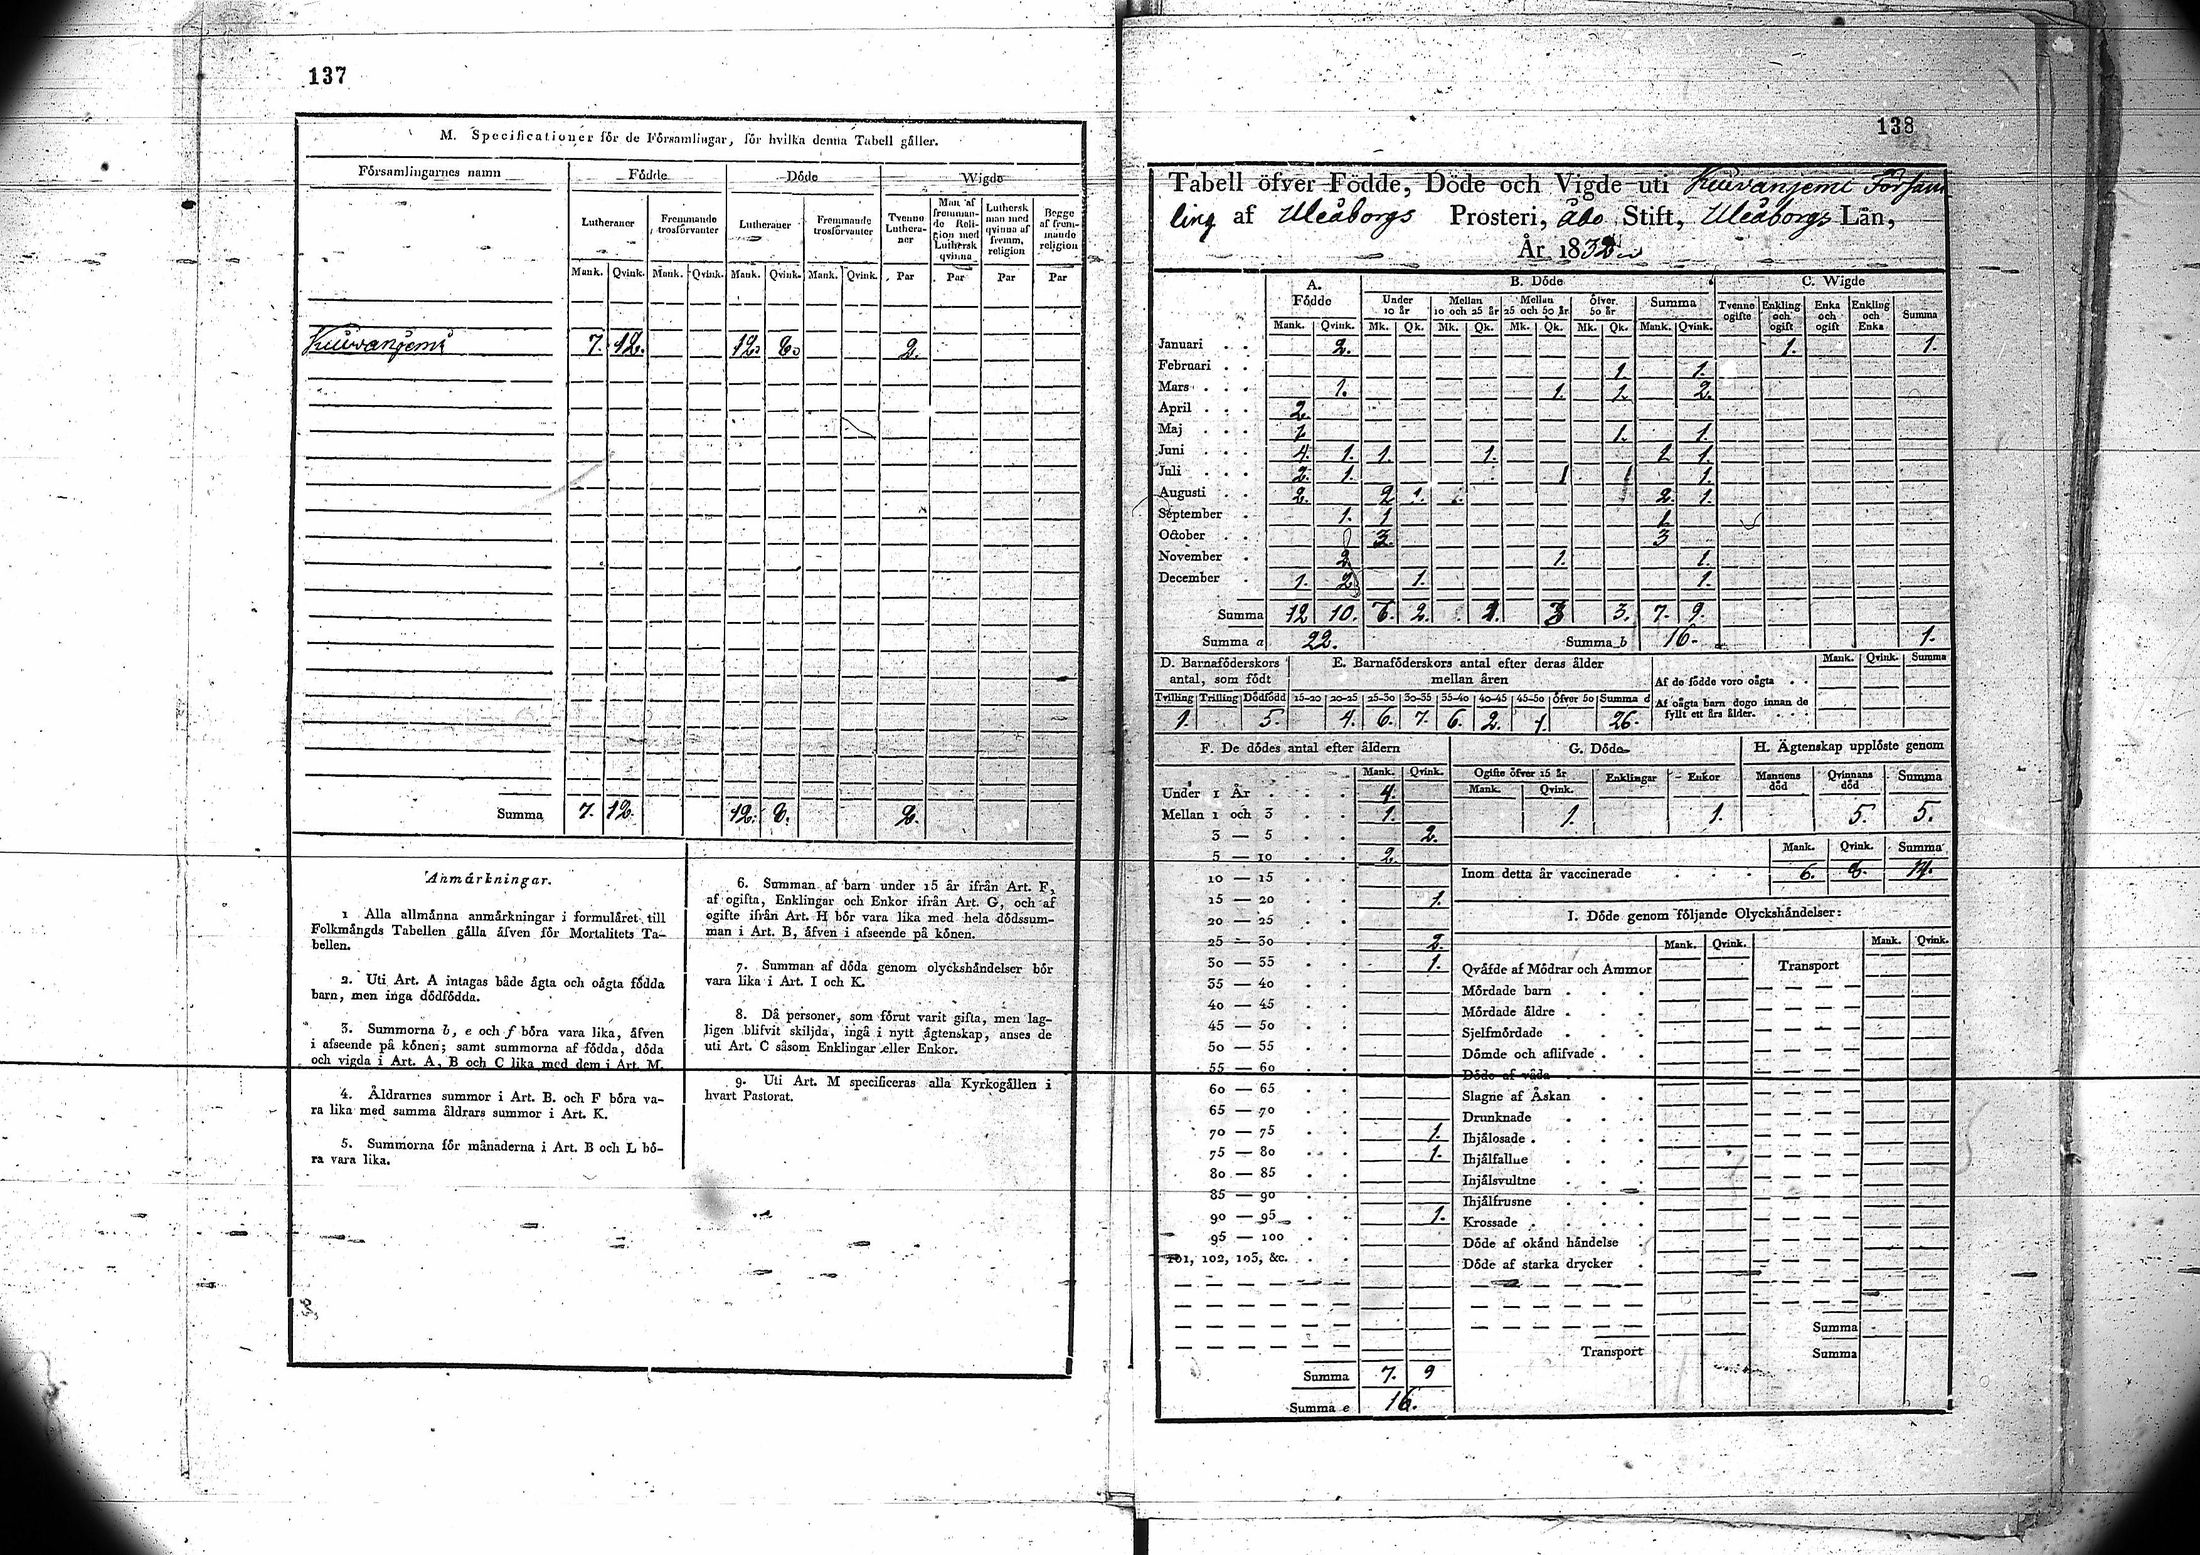 137
M. Specificationer för de Församlingar, för hvilka denna Tabell gäller.
Församlingarnes namn Födde Döde Wigde
Lutheraner Fremmande trosförvanter Lutheraner Fremmande trosförvanter Tvenne Lutheraner Man af fremmande Religion med Luthersk qvinna Luthersk man med qvinna af fremm. religion Begge af fremmande religion
Mank. Qvink. Mank. Qvink. Mank. Qvink. Mank. Qvink. Par Par Par Par
Kiuvanjemi 7. 12. 12. 2.
Summa 7. 12. 12. 2.
Anmärkningar.
1 Alla allmänna anmärkningar i formuläret till
Folkmängds Tabellen gälla äfven för Mortalitets Ta-
bellen.
2. Uti Art. A intagas både ägta och oägta födda
barn, men inga dödfödda.
3. Summorna b, e och f böra vara lika, äfven
i afseende på könen; samt summorna af födda, döda
och vigda i Art. A, B och C lika med dem i Art. M.
4. Åldrarnes summor i Art. B. och F böra va-
ra lika med summa åldrars summor i Art. K.
5. Summorna för månaderna i Art. B och L bö-
ra vara lika.
6. Summan af barn under 15 år ifrån Art. F,
af ogifta, Enklingar och Enkor ifrån Art. G, och af
ogifte ifrån Art. H bör vara lika med hela dödssum-
man i Art. B, äfven i afseende på könen.
7. Summan af döda genom olyckshändelser bör
vara lika i Art. I och K.
8. Då personer, som förut varit gifta, men lag-
ligen blifvit skiljda, ingå i nytt ägtenskap, anses de
uti Art. C såsom Enklingar eller Enkor.
9. Uti Art. M specificeras alla Kyrkogällen i
hvart Pastorat.
138
Tabell öfver Födde, Döde och Vigde uti Kiuvanjemi Försam
ling af Uleåborgs Prosteri, Åbo Stift, Uleåborgs Län,
År 1832
A. Födde B. Döde C. Wigde
Under 10 år Mellan 10 och 25 år Mellan 25 och 50 år Öfver 50 år Summa Tvenne ogifte Enkling och ogift Enka och ogift Enkling och Enka Summa
Mank. Qvink. Mk. Qk. Mk. Qk. Mk. Qk. Mk. Qk. Mank. Qvink.
Januari 2. 1. 1.
Februari 1. 1.
Mars 1. 1. 1. 2.
April 2.
Maj 1 1. 1.
Juni 4. 1. 1. 1. 1 1.
Juli 2. 1. 1 1.
Augusti 2. 2 1. 2. 1.
September 1. 1 1
October 3. 3
November 2 1. 1.
December 1. 2 1. 1.
Summa 12 10. 2. 1. 3 3. 7. 9.
Summa a 22. Summa b 16. 1.
D. Barnaföderskors antal, som födt
E. Barnaföderskors antal efter deras ålder mellan åren
Mank. Qvink. Summa
Af de födde voro oägta
Tvilling Trilling Dödfödd 15-20 20-25 25-30 30-35 35-40 40-45 45-50 Öfver 50 Summa d
Af oägta barn dogo innan de fyllt ett års ålder.
1. 5. 4. 6. 7. 6. 2. 1. 26.
F. De dödes antal efter åldern
Mank. Qvink.
Under 1 År 4.
Mellan 1 och 3 1.
3 — 5 2.
5 — 10 2.
10 — 15
15 — 20 1.
20 — 25
25 — 30 2.
30 — 35 1.
35 — 40
40 — 45
45 — 50
50 — 55
55 — 60
60 — 65
65 — 70
70 — 75 1.
75 — 80 1.
80 — 85
85 — 90
90 — 95 1.
95 — 100
101, 102, 103, &c.
Summa 7. 9
Summa e 16.
G. Döde
Ogifte öfver 15 år Enklingar Enkor
Mank. Qvink.
1. 1.
H. Ägtenskap upplöste genom
Mannens död Qvinnans död Summa
5. 5.
Mank. Qvink. Summa
Inom detta år vaccinerade 6. 8. 14.
I. Döde genom följande Olyckshändelser:
Mank. Qvink. Mank. Qvink.
Qväfde af Mödrar och Ammor Transport
Mördade barn
Mördade äldre
Sjelfmördade
Dömde och aflifvade
Döde af våda
Slagne af Åskan
Drunknade
Ihjälosade
Ihjälfallne
Ihjälsvultne
Ihjälfrusne
Krossade
Döde af okänd händelse
Döde af starka drycker
Summa
Transport Summa